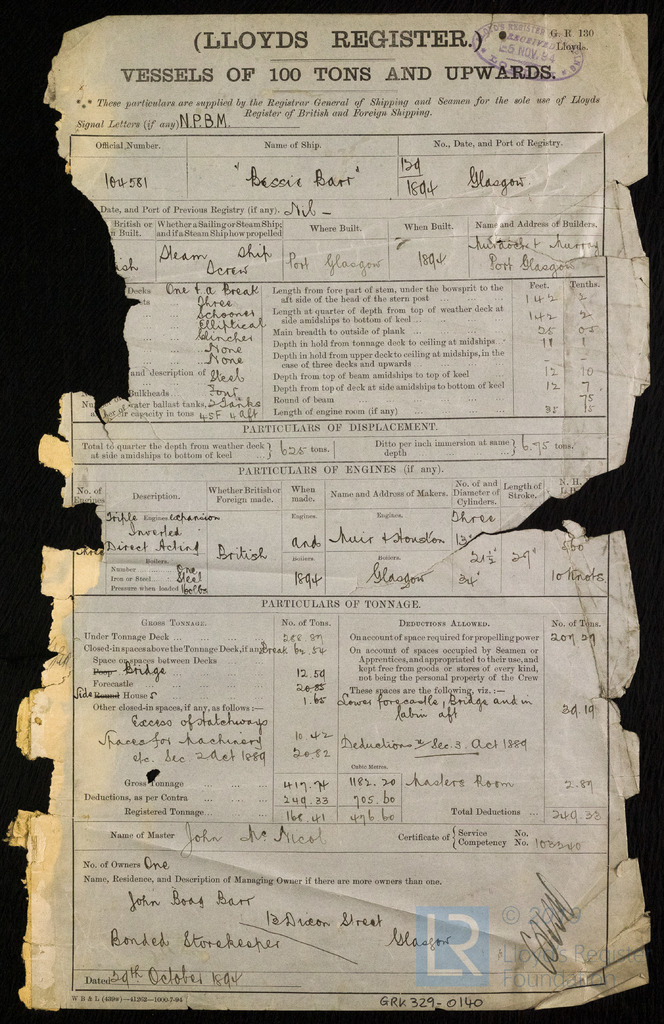 (LLOYDS REGISTER.)
G. R 130
Lloyds.
LLOYD'S REGISTER
RECEIVED
5 NOV. 94
VESSELS OF 100 TONS AND UPWARDS.
*** These particulars are supplied by the Registrar General of Shipping and Seamen for the sole use of Lloyds
Register of British and Foreign Shipping.
Signal Letters (if any) N.P.B.M.
Official Number. Name of Ship. No., Date, and Port of Registry.
104581 "Bessie Barr" 129/1894 Glasgow
Date, and Port of Previous Registry (if any). Nil -
British or Built. Whether a Sailing or Steam Ship; and if a Steam Ship how propelled Where Built. When Built. Name and Address of Builders.
ish Steam Ship Screw Port Glasgow 1894 Murdoch & Murray Port Glasgow
Decks One & a Break
Three
Schooner
Elliptical
Clincher
None
None
and description of Steel
Bulkheads Four
water ballast tanks, 2 Tanks
capacity in tons 45F 4 aft
Feet. Tenths.
Length from fore part of stem, under the bowsprit to the aft side of the head of the stern post 142 2
Length at quarter of depth from top of weather deck at side amidships to bottom of keel 142 2
Main breadth to outside of plank 25 05
Depth in hold from tonnage deck to ceiling at midships 11 1
Depth in hold from upper deck to ceiling at midships, in the case of three decks and upwards - -
Depth from top of beam amidships to top of keel 12 10
Depth from top of deck at side amidships to bottom of keel 12 7
Round of beam 75
Length of engine room (if any) 35 15
PARTICULARS OF DISPLACEMENT.
Total to quarter the depth from weather deck at side amidships to bottom of keel } 625 tons. Ditto per inch immersion at same depth } 6.75 tons.
PARTICULARS OF ENGINES (if any).
No. of Engines Description. Whether British or Foreign made. When made. Name and Address of Makers. No. of and Diameter of Cylinders. Length of Stroke. N. H.
Triple Engines expansion Engines. Engines. Three
Inverted
Three Direct Acting British and Muir & Houston 13" 21½" 27"
Boilers. Boilers. Boilers.
Number One 1894 Glasgow 34" 10 Knots
Iron or Steel Steel
Pressure when loaded 160 lbs
PARTICULARS OF TONNAGE.
GROSS TONNAGE. No. of Tons. DEDUCTIONS ALLOWED. No. of Tons.
Under Tonnage Deck 288.87 On account of space required for propelling power 207.27
Closed-in spaces above the Tonnage Deck, if any Break 62.54
Space or spaces between Decks
On account of spaces occupied by Seamen or Apprentices, and appropriated to their use, and kept free from goods or stores of every kind, not being the personal property of the Crew
Poop Bridge 12.59
Forecastle 20.85
Side Round House s 1.65
These spaces are the following, viz.:—
Lower forecastle, Bridge and in cabin aft 39.19
Other closed-in spaces, if any, as follows:—
Excess of Hatchways 10.42
Spaces for Machinery 20.82
etc. Sec 2 Act 1889
Deductions Sec. 3. Act 1889
Cubic Metres.
Gross Tonnage 417.74 1182.20 Masters Room 2.87
Deductions, as per Contra 249.33 705.60
Registered Tonnage 168.41 476.60 Total Deductions 249.33
Name of Master John McNicol Certificate of { Service No. Competency No. 103240
No. of Owners One
Name, Residence, and Description of Managing Owner if there are more owners than one.
John Boag Barr
13 Dixon Street
Bonded Storekeeper Glasgow
Dated 29th October 1894
W B & L (439w)—41262—1000-7-94
GRK 329-0140
LR
Lloyds Register
Foundation